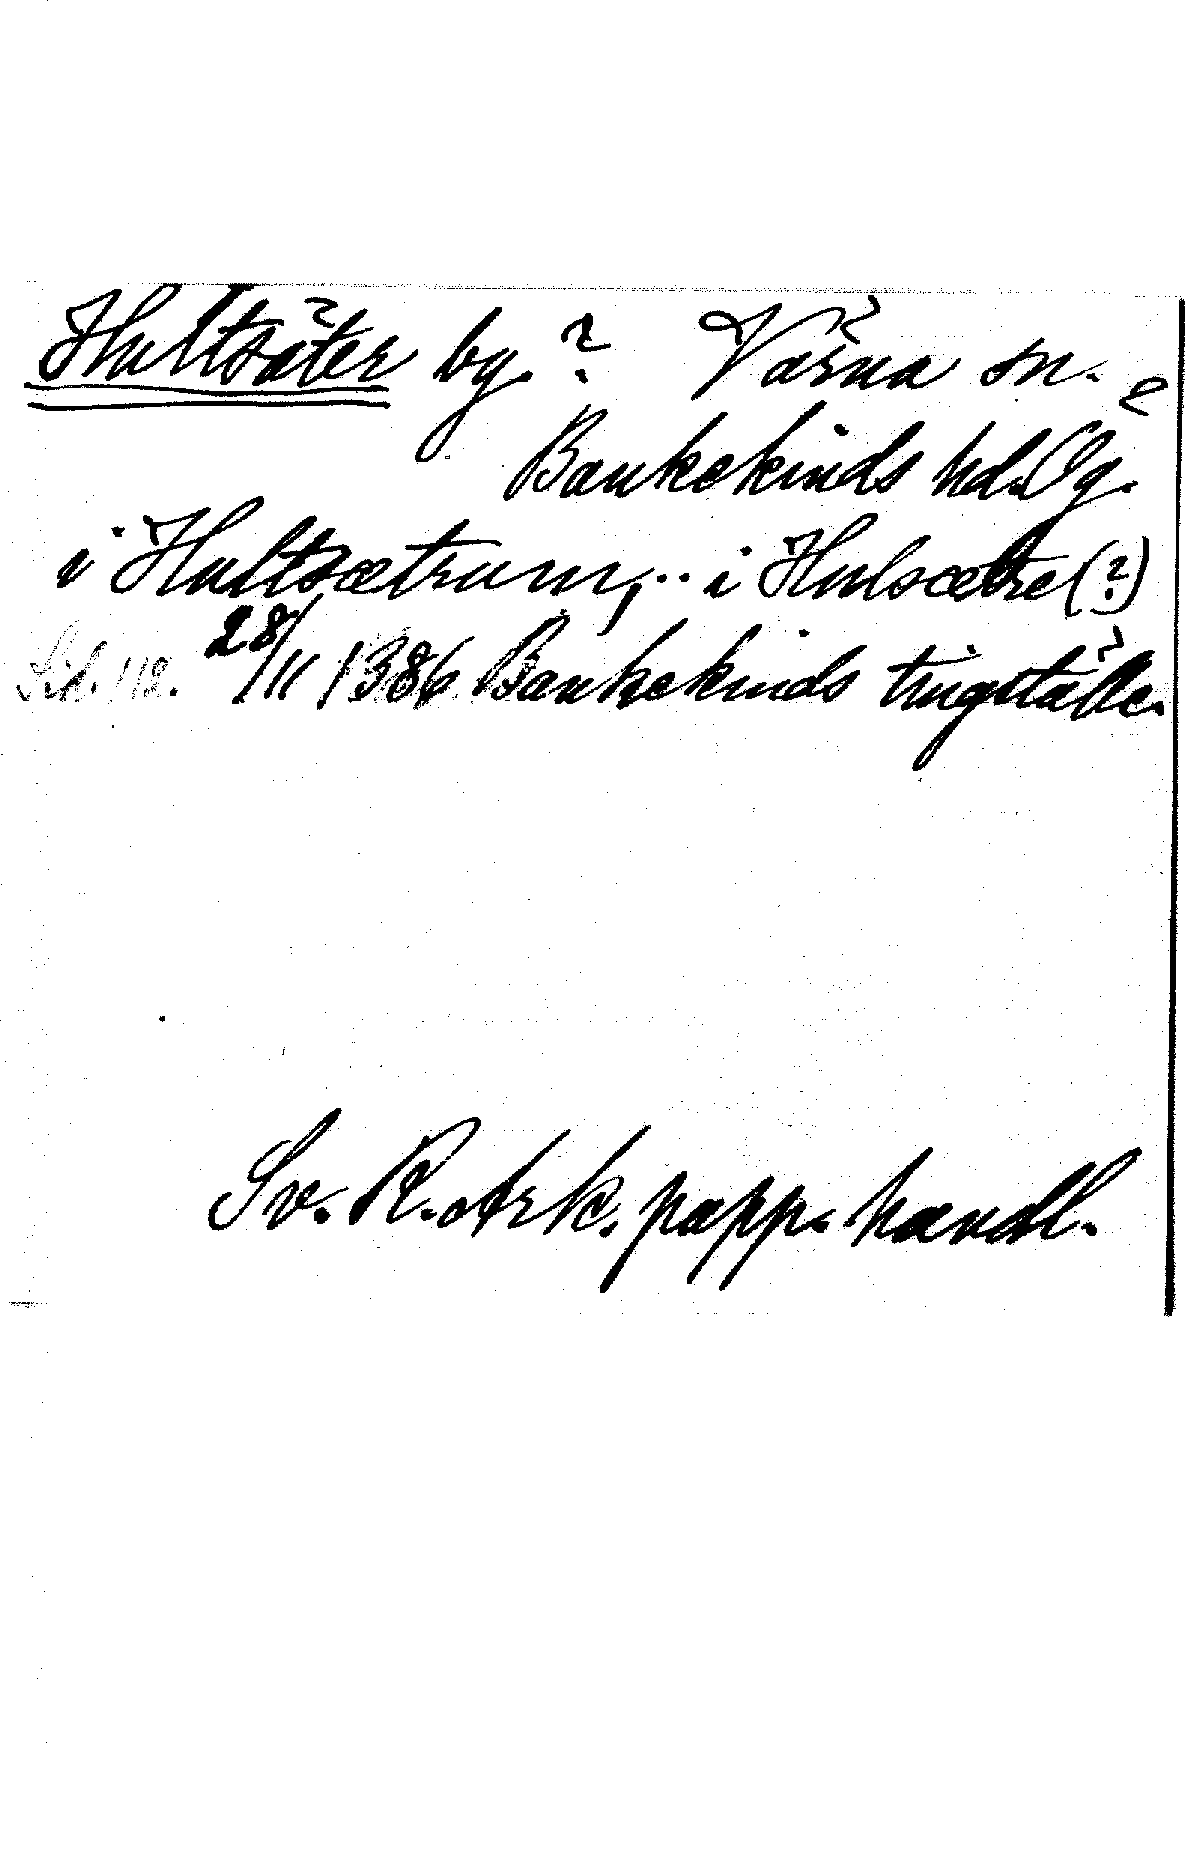 Hultsäter by.? Värna sn.
Bankekinds hd. Ög.
i Hultsætrum, .. i Hulsætre (?)
Sid. 112. 28/11 1386 Bankekinds tingställe.
Sv. R. Ark. papp. handl.